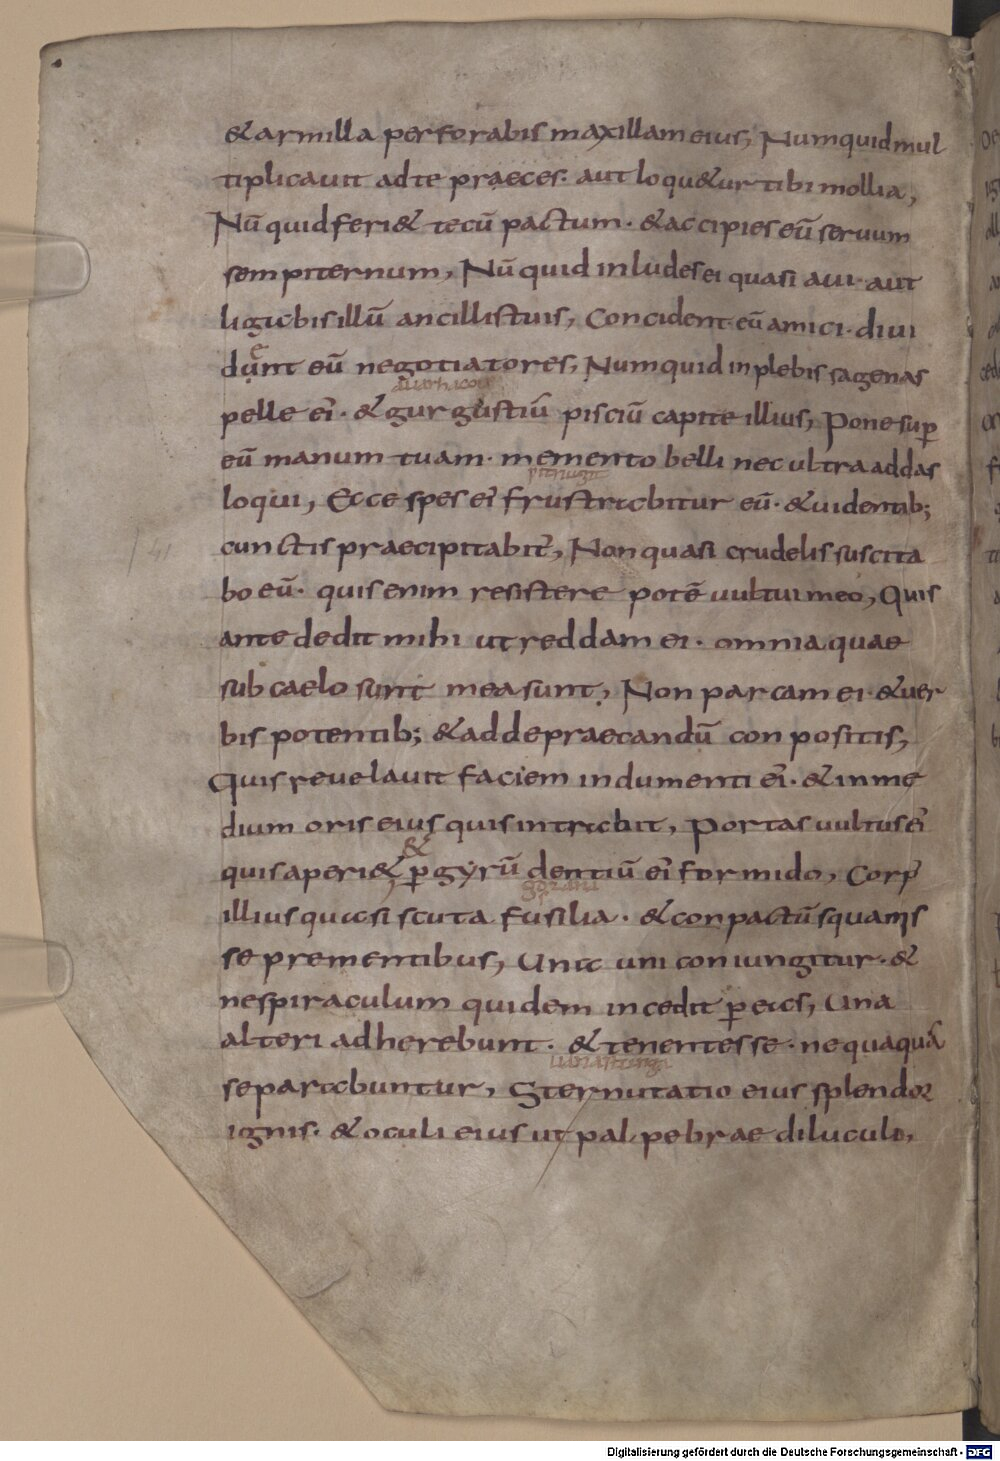 & armilla perforabis maxillam eius, Numquid mul
tiplicauit ad te praeces· aut loqu&ur tibi mollia,
Nū quid feri& tecū pactum· & accipies eū seruum
sempiternum, Nū quid inludes ei quasi aui· aut
ligabis illū ancillis tuis, Concident eū amici· diui
dunt eū negotiatores, Numquid inplebis sagenas
e
pelle ei᾽· & gurgustiū pisciū capite illius, Pone sup̄
eū manum tuam· memento belli nec ultra addas
loqui, Ecce spes ei᾽ frustrabitur eū· & uidentib;
cunctis praecipitabit᾽, Non quasi crudelis suscita
bo eū· quis enim resistere potē uultui meo, Quis
ante dedit mihi ut reddam ei· omnia quae
sub caelo sunt mea sunt, Non parcam ei· & uer
bis potentib; & ad depraecandū conpositis,
Quis reuelauit faciem indumenti ei᾽· & in me
dium oris eius quis intrabit, Portas uultus ei᾽
&
quis aperi& p̄ gyrū dentiū ei᾽ formido, Corp᾽
illius quasi scuta fusilia· & conpactū squamis
se prementibus, Una uni coniungitur· &
ne spiraculum quidem incedit p̄ eas, Una
alteri adherebunt· & tenentes se· nequaquā
separabuntur, Sternutatio eius splendor
ignis· & oculi eius ut palpebrae diluculi,
Digitalisierung gefördert durch die Deutsche Forschungsgemeinschaft - DFG